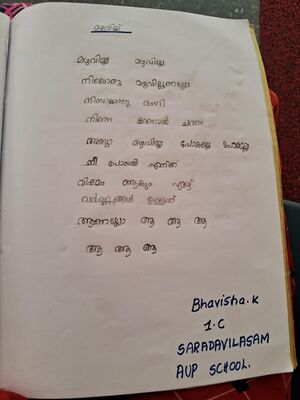 മഴവില്ല്
മഴവില്ലേ മഴവില്ലേ
നിന്നെ കാണാൻ ചന്തം
അയ്യോ മഴവില്ലേ പോകല്ലേ പോകല്ലേ
നീ പോയാൽ എനിക്ക്
വിഷമം ആകും ഏഴ്
വർണ്ണങ്ങൾ ഉള്ളത്
ആണല്ലോ ആ ആ ആ
ആ ആ ആ
Bhavisha.K
1.C
SARADAVILASAM
AUP SCHOOL.